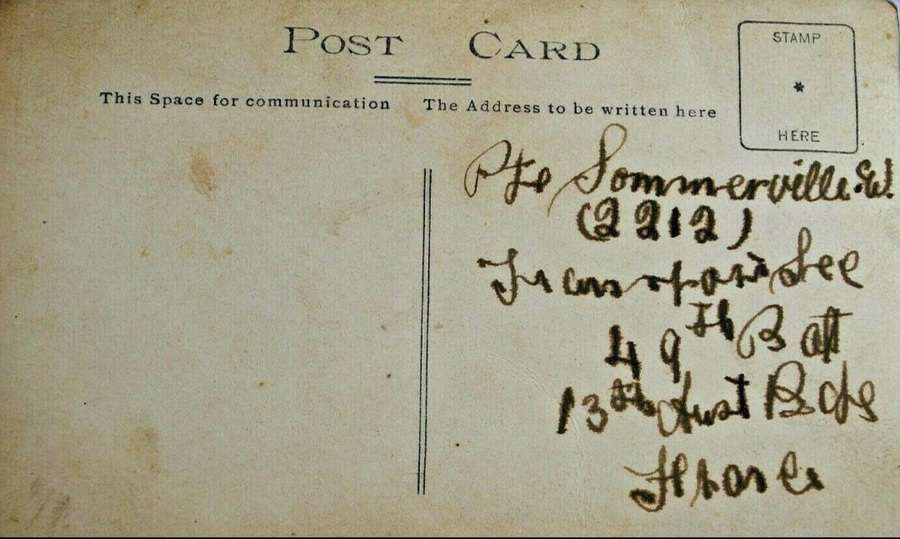 POST CARD
This Space for communication
The Address to be written here
STAMP
*
HERE
Pte Sommerville. W.
(2212)
Transport Sec
49th Batt
13th Aust Bde
France